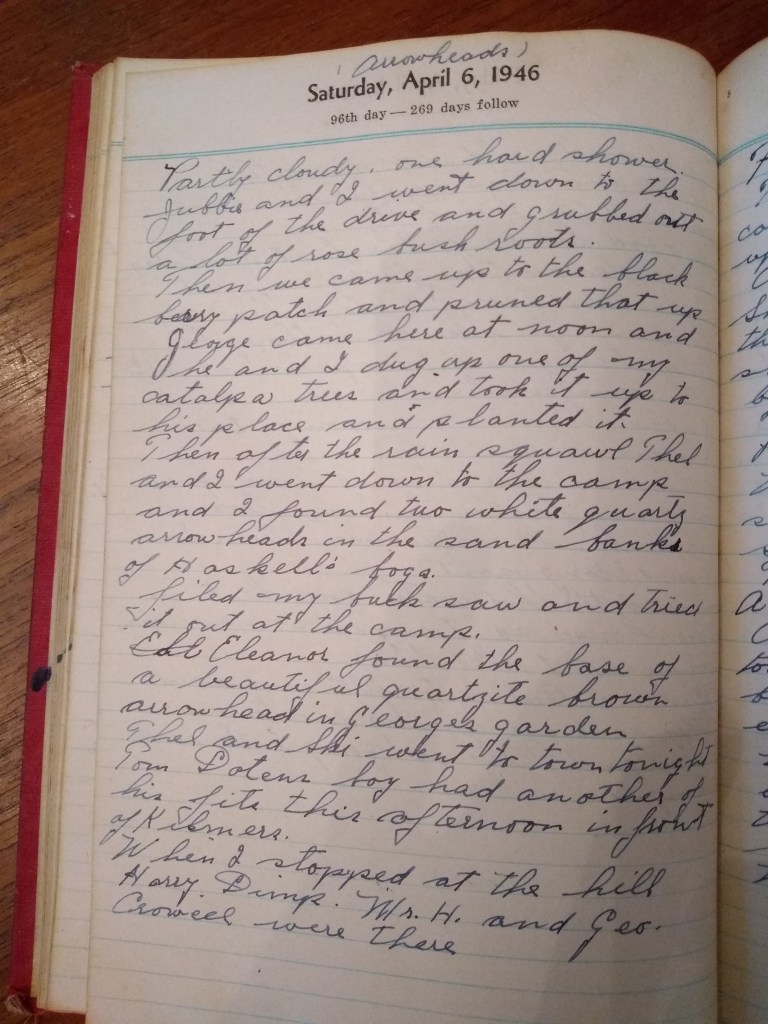 (Arrowheads)
Saturday, April 6, 1946
96th day — 269 days follow
Partly cloudy. one hard shower.
Jubbie and I went down to the
foot of the drive and grubbed out
a lot of rose bush roots.
Then we came up to the black
berry patch and pruned that up
George came here at noon and
he and I dug up one of my
catalpa trees and took it up to
his place and planted it.
Then after the rain squawl Thel
and I went down to the camp
and I found two white quartz
arrowheads in the sand banks
of Haskell's bogs.
filed my buck saw and tried
it out at the camp.
Eleanor found the base of
a beautiful quartzite brown
arrowhead in Georges garden
Thel and Ski went to town tonight
Tom Potens boy had another of
his fits this afternoon in front
of Kilmers.
When I stopped at the hill
Harry Dimp. Mr. H. and Geo.
Crowell were there